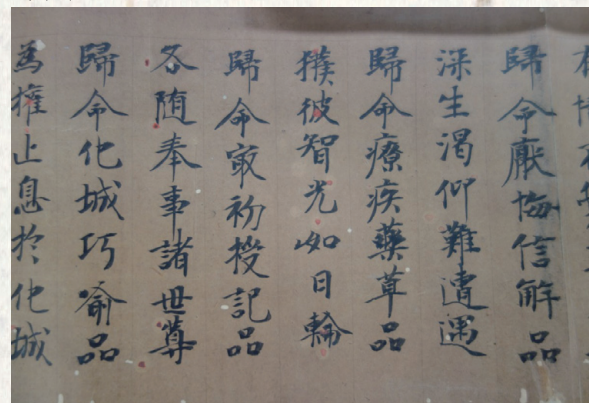 歸命厭悔信解品
深生渴仰難遭遇
歸命療疾藥草品
彼智光如日輪
歸命㝡初授記品
各随奉事諸世尊
歸命化城巧喻品
為權止息於化城